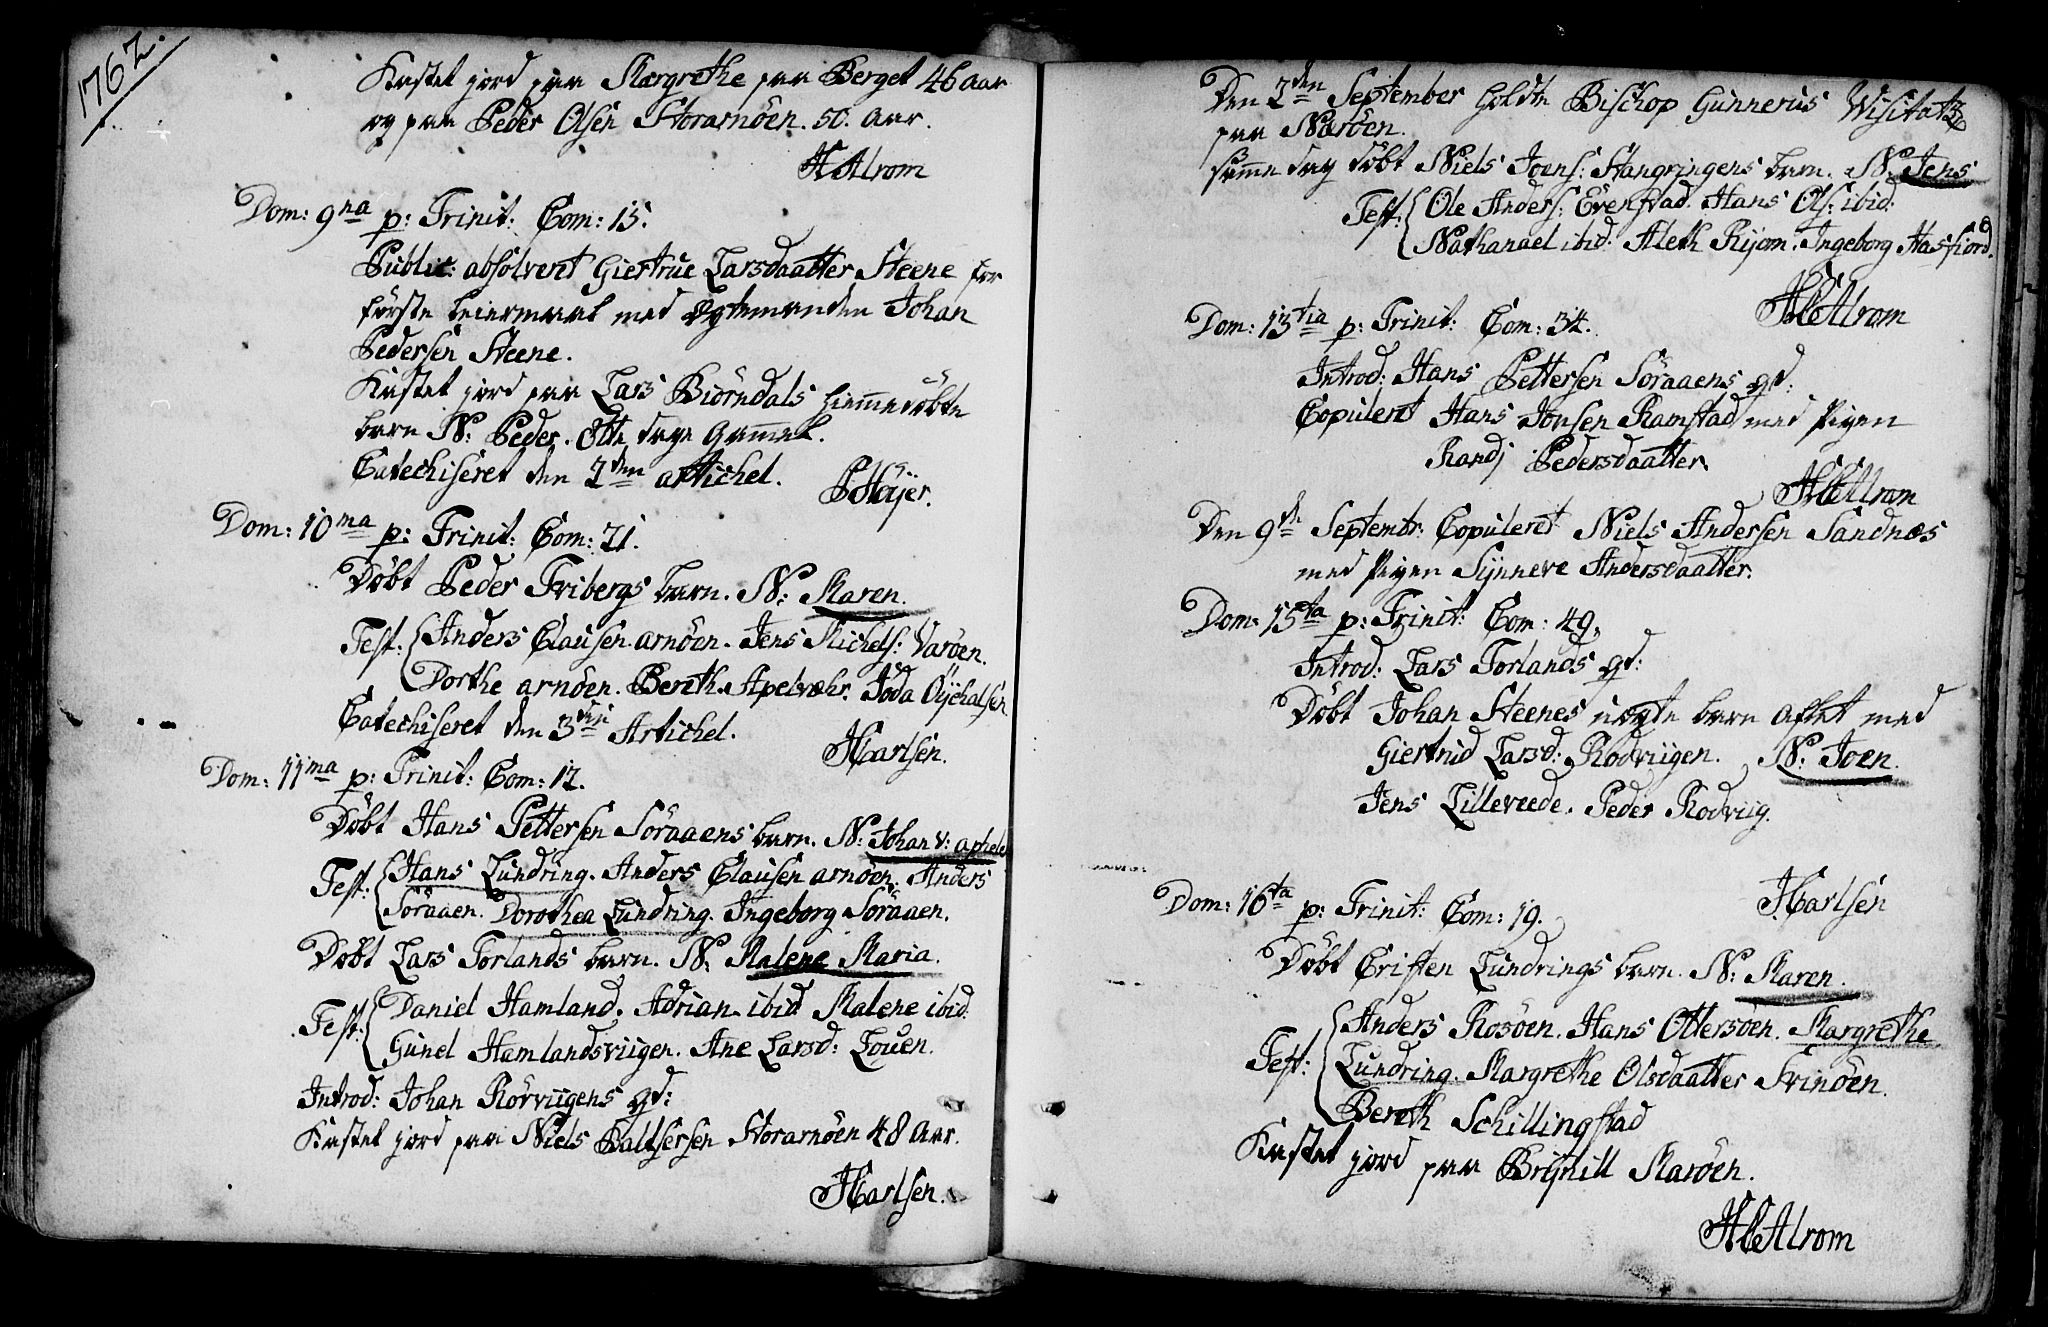 1762.
Kastet jord paa Margrethe paa Berget 46 aar
og paa Peder Olsen Storarnöen. 50. aar.
HCAlrom
Dom: 9na p: Trinit: Com: 15.
Public: absolvert Giertrue Larsdaatter Steene for
förste leiermaal med Ægtemanden Johan
Pedersen Steene.
Kastet jord paa Lars Biörndals hiemmedöbte
barn N: Peder. Otte dage gammel.
Catechiseret den 2den artichel.
PHeyer.
Dom: 10ma p: Trinit: Com: 21.
Döbt Peder Fribergs barn. N: Maren.
Test: Anders Clausen arnöen. Jens Michels: Varöen.
Dorthe arnöen. Bereth Apelvæhr.
Catechiseret den 3die Artichel.
JCarlsen.
Dom: 11ma p: Trinit: Com: 12.
Döbt Hans Pettersen Söraaens barn. N: Johan v:
Test: Hans Lundring. Anders Clausen arnöen. Anders
Söraaen. Dorothea Lundring. Ingeborg Söraaen.
Döbt Lars Forlands barn. N: Malene Maria.
Test: Daniel Hamland. Adrian ibid Malene ibid.
Gunel Hamlandsviigen. Ane Larsd: Fouen.
Introd: Johan Rörviigens qd:
Kastet jord paa Niels Baltsersen Storarnöen 48 aar.
JCarlsen.
Den 2den September holdte Bischop Gunnerus Visitatz
paa Naröen.
samme dag döbt Niels Joens: Stangringens barn. N: Jens
Test: Ole Anders: Evenstad. Hans Ols: ibid.
Nathanael ibid. Aleth Rijom. Ingeborg Hasfiord.
HCAlrom
Dom: 13tia p: Trinit: Com: 34.
Introd: Hans Pettersen Söraaens qd:
Copulert Hans Jonsen Ramstad med Pigen
Randj Pedersdaatter.
HCAlrom
Den 9de Septembr: Copuleret Niels Andersen Sandnæs
med Pigen Synneve Andersdaatter.
Dom: 15ta p: Trinit: Com: 49.
Introd: Lars Forlands qd:
Döbt Johan Steenes uægte barn aflet med
Giertrud Larsd: Rodviigen. N: Joen.
Jens Lilleveede. Peder Rodviig.
JCarlsen
Dom: 16ta p: Trinit: Com: 19.
Döbt Cristen Lundrings barn. N: Maren.
Test: Anders Rosöen. Hans Ottersöen. Margrethe
Lundring. Margrethe Olsdaatter Frinöen.
Bereth Schillingstad
Kastet jord paa Brynill Maröen.
HCAlrom